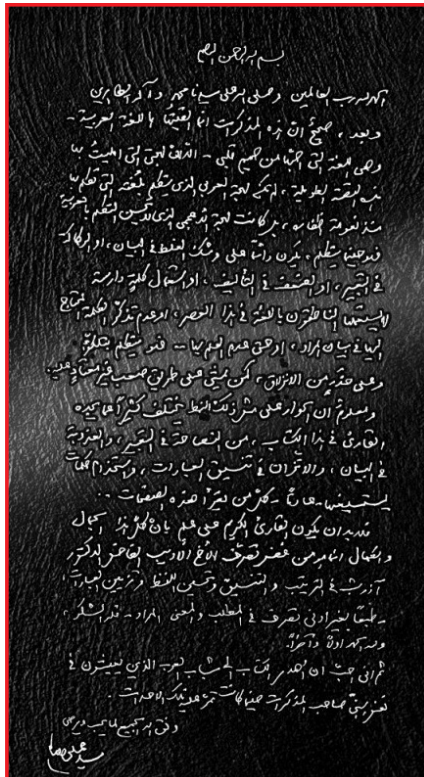 بسم الله الرحمن الرحيم
الحمد لله رب العالمين وصلى الله على سيدنا محمد وآله الطاهرين
وبعد، صحيح أنّ هذه المذكرات انما القيتها باللغة العربية -
وهي اللغة التي احبّها من صميم قلبي - الا انّ لهجتي التي امليتُ بها
هذه القصة الطويلة، لم تكن لهجة العربي الذي يتكلم بلغته التي تعلم بها
منذ نعومة اظفاره، بل كانت لهجة الاعجمي الذي اذا تكلم بالعربية
فهو حينما يتكلم، يكون دائماً على وشك الغلط في البيان، او الركاكة
في التعبير، او الضعف في التأليف، او استعمال كلمة دارسة
لا يستعملها الناطقون باللغة في هذا العصر، او عدم تذكّر الكلمة المحتاج
اليها في بيان المراد، او حتى عدم العلم بها -- فهو يتكلم بتكلّف
وعلى حذرٍ من الانزلاق، كمن يمشي على طريق صعب غير معتاد عليه.
ومعلوم ان الحوار على مثل ذلك النمط يختلف كثيراً عما يجده
القارئ في هذا الكتاب، من الفصاحة في التعبير، والعذوبة
في البيان، والاتزان في تنسيق العبارات، واستخدام كلمات
من هذه الصفات..
فلا بد ان يكون القارئ الكريم على علم بأن كل هذا الجمال
والكمال انما هو من تصرف الأخ الأديب الفاضل الدكتور
آذرشب في الترتيب والتنسيق وتحسين اللفظ وتزيين العبارات،
- طبعاً بغير ادنى تصرف في المطلب والمعنى المراد - فله الشكر،
ولله الحمد اولاً وآخراً.
ثم اني احبّ ان اُهدي الكتاب الى شباب العرب الذين يعيشون في
صاحب المذكرات حينما كانت تمر عليه تلك الاحداث.
وفق الله الجميع لما يحب ويرضى